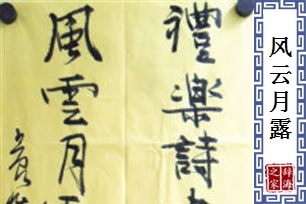 禮樂詩
風雲月
风云月露
辞海
之家